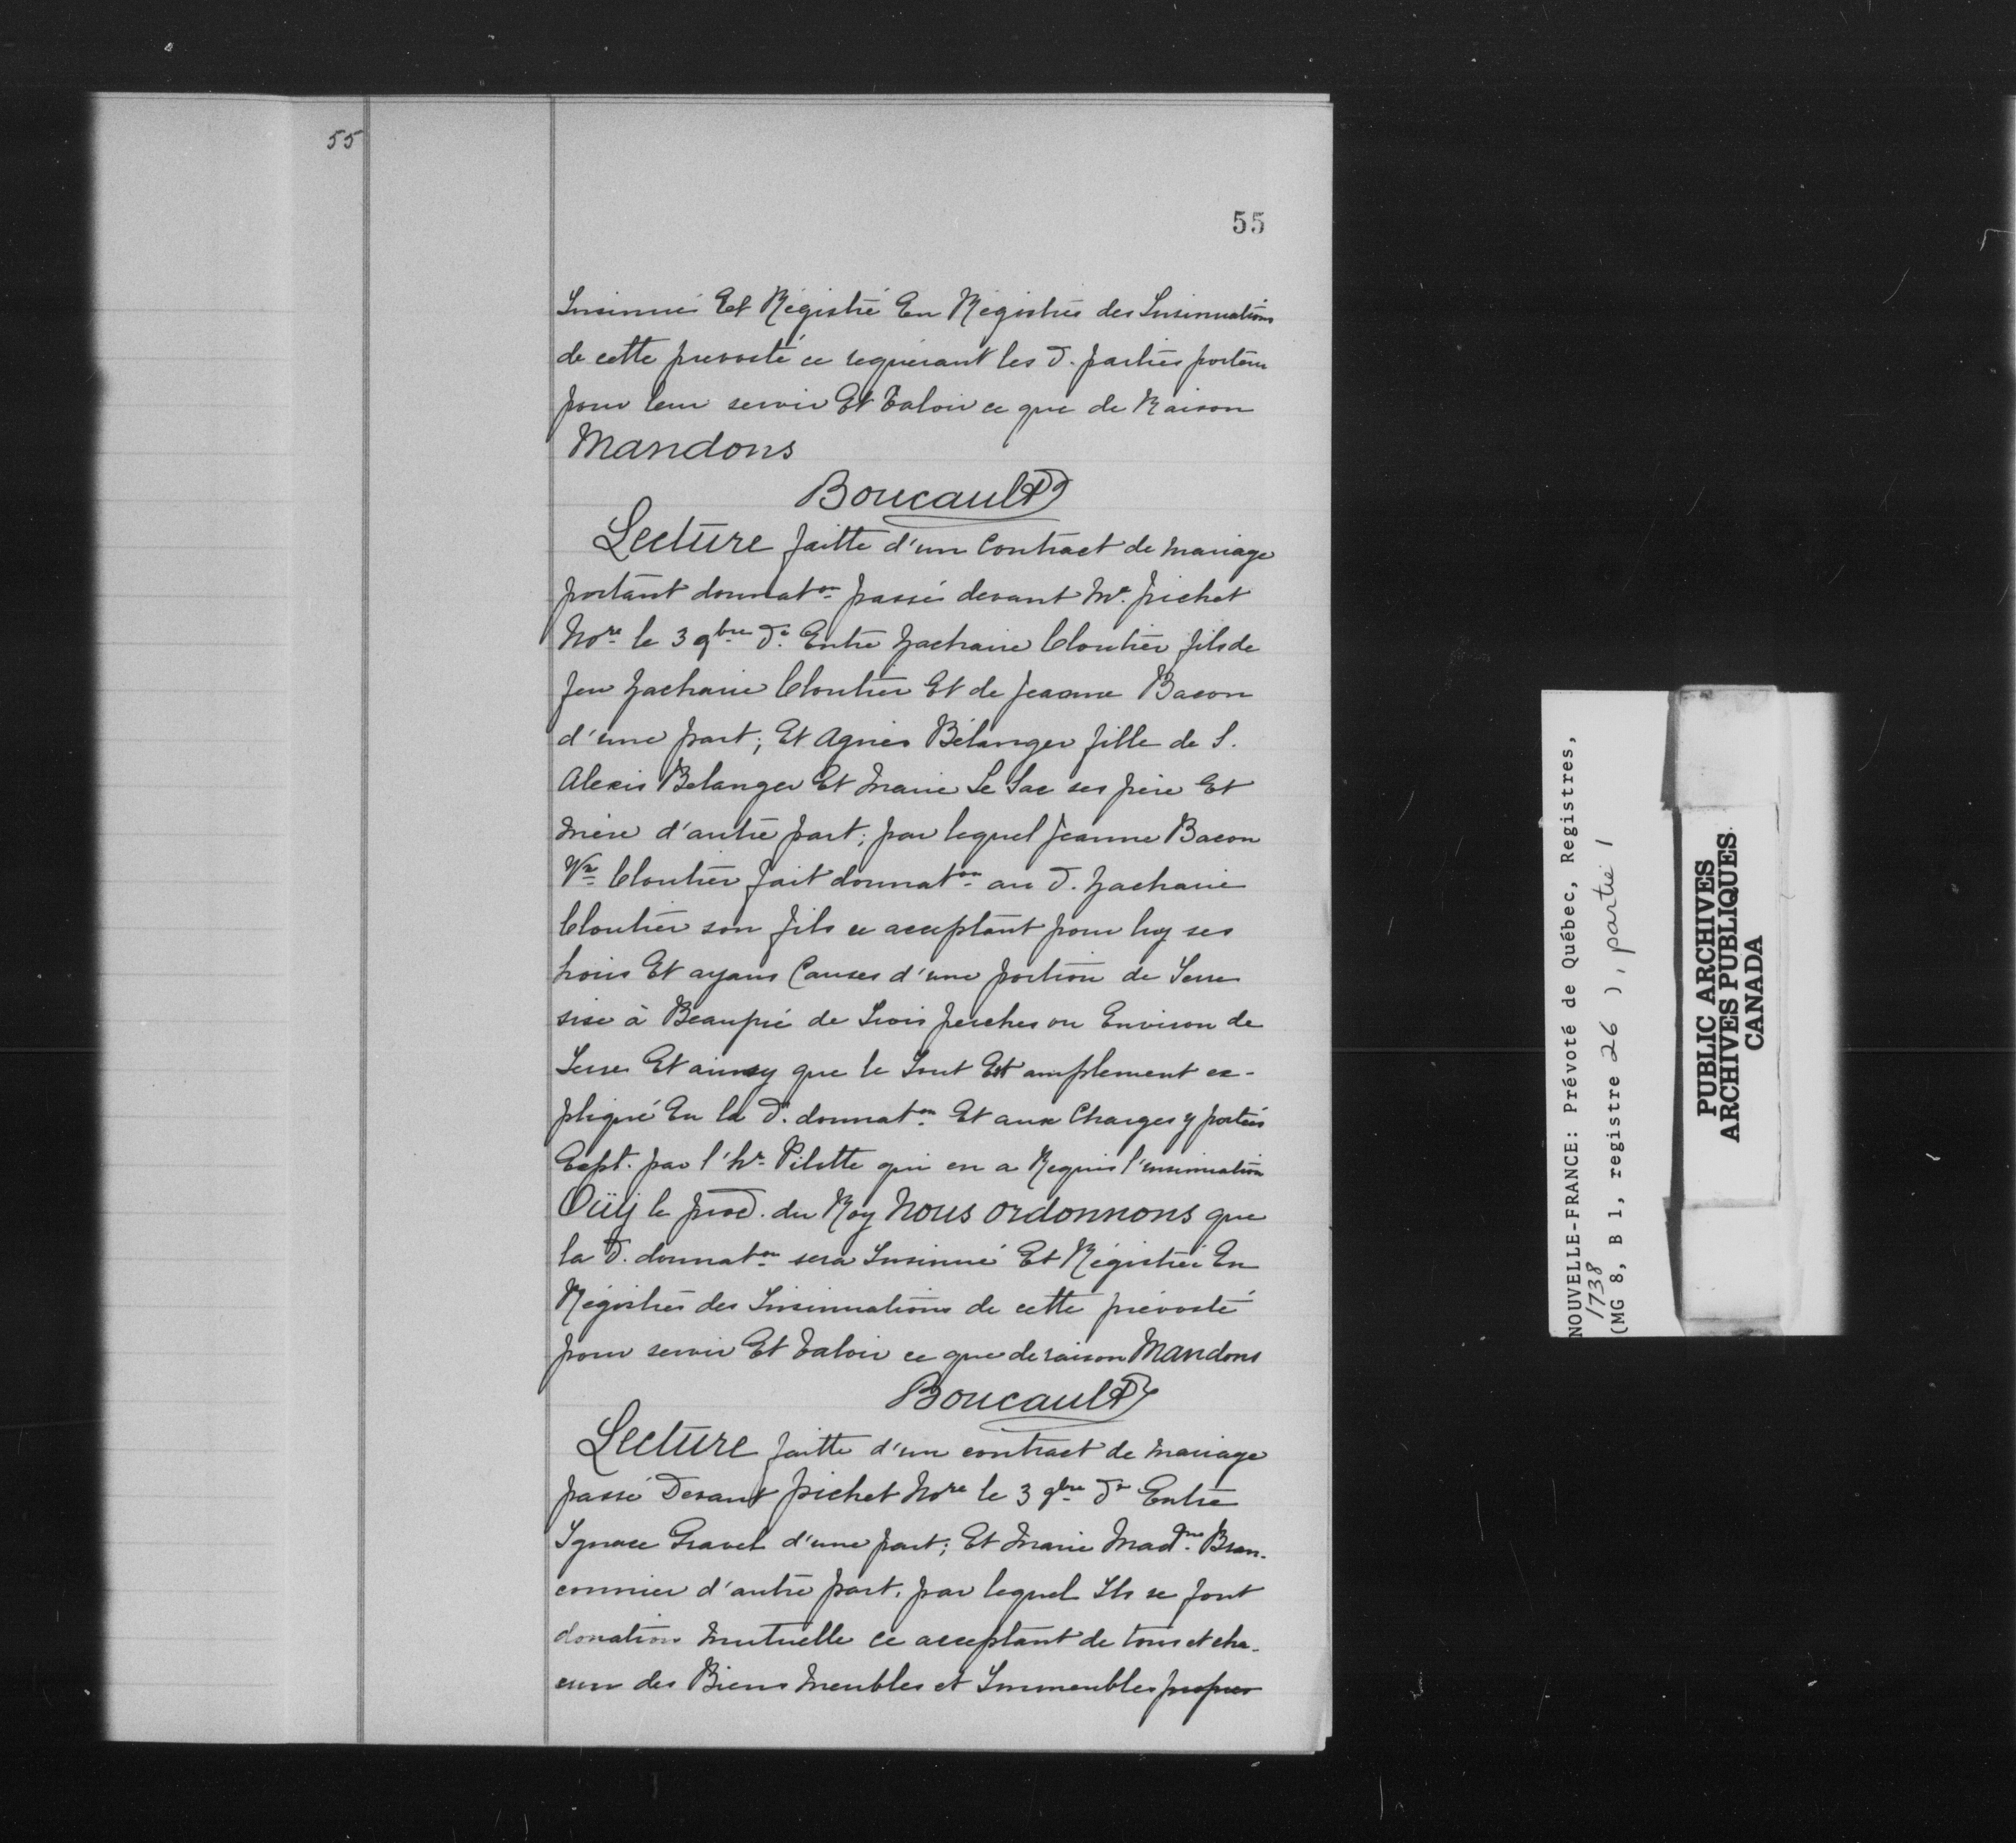 55
55
Insinué Et Régistré En Régistres des Insinuations
de cette prevosté ce requérant les d. parties porteur
pour leur servir Et Valoir ce que de Raison
Mandons
Boucault
Lecture faitte d'un Contract de mariage
portant donnaton passé devant Me. pichet
Nore le 3 9bre dr. Entre Zacharie Cloutier fils de
feu Zacharie Cloutier Et de Jeanne Bacon
d'une part; Et Agnès Bélanger fille de S.
Alexis Belanger Et Marie Le Sac ses père Et
mère d'autre part; par lequel Jeanne Bacon
Ve Cloutier fait donnaton au d. Zacharie
Cloutier son fils ce acceptant pour luy ses
hoirs Et ayans Causes d'une portion de Terre
sise à Beaupré de Trois perches ou Environ de
Terre Et ainsy que le Tout Est amplement ex-
pliqué En la d. donnaton Et aux Charges y portées
Cept. par l'hr. Pilotte qui en a Requis l'insinuation
Oüÿ le proc. du Roy Nous ordonnons que
la d. donnaton sera Insinué Et Régistrée En
Régistres des Insinuations de cette prévosté
pour servir Et Valoir ce que de raison Mandons
Boucault
Lecture faitte d'un contract de mariage
passé Devant pichet Nore le 3 9bre dr Entre
Ignace Gravel d'une part; Et Marie Madne. Bran-
connier d'autre part, par lequel Ils se font
donation Mutuelle ce acceptant de tous et cha-
cun des Biens Meubles et Immeubles propres
NOUVELLE-FRANCE: Prévoté de Québec, Registres,
1738
(MG 8, B 1, registre 26 ), partie 1
PUBLIC ARCHIVES
ARCHIVES PUBLIQUES
CANADA